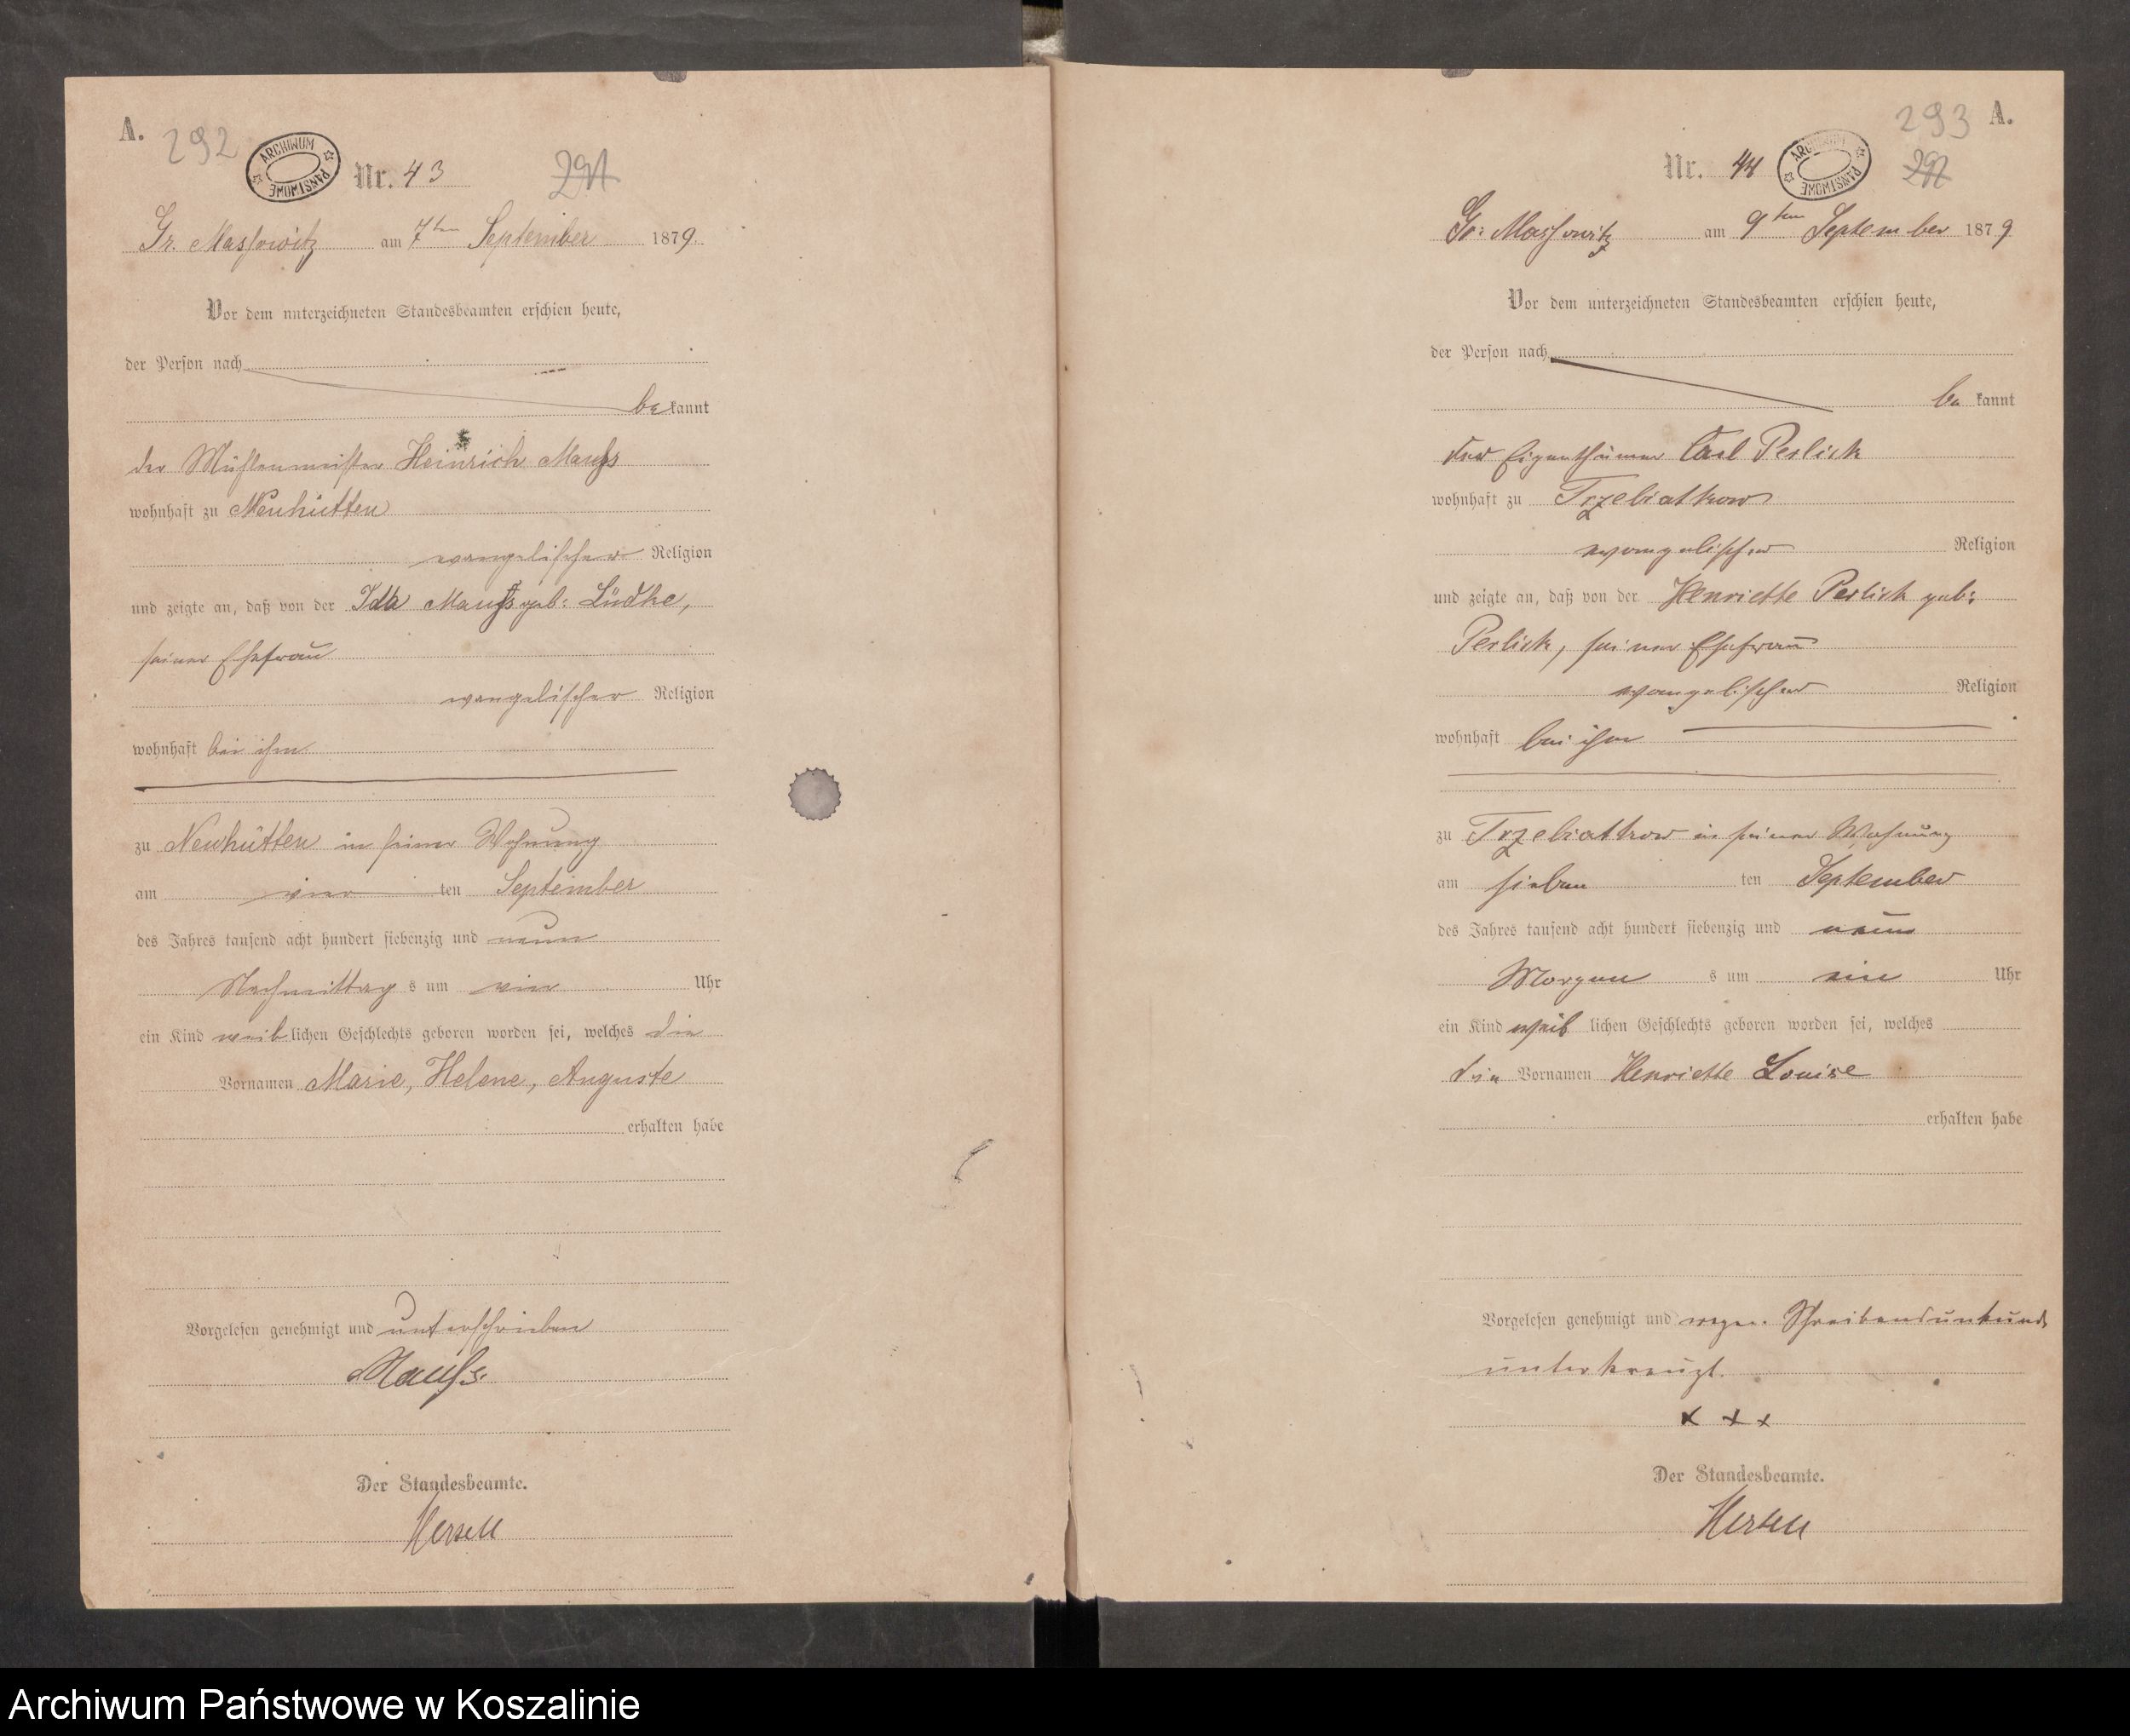 A.
292
ARCHIWUM PAŃSTWOWE
Nr. 43
291
Gr. Massowitz am 7ten September 1879.
Vor dem unterzeichneten Standesbeamten erschien heute,
der Person nach
bekannt
der Mühlenmeister Heinrich Mauss
wohnhaft zu Neuhütten
evangelischer Religion
und zeigte an, daß von der Ida Mauss geb: Lüdke,
seiner Ehefrau
evangelischer Religion
wohnhaft bei ihm
zu Neuhütten in seiner Wohnung
am vier ten September
des Jahres tausend acht hundert siebenzig und neun
Nachmittag s um vier Uhr
ein Kind weiblichen Geschlechts geboren worden sei, welches die
Vornamen Marie, Helene, Auguste
erhalten habe
Vorgelesen genehmigt und unterschrieben
Mauss.
Der Standesbeamte.
293 A.
Nr. 44
ARCHIWUM PAŃSTWOWE
292
Gr: Massowitz am 9ten September 1879
Vor dem unterzeichneten Standesbeamten erschien heute,
der Person nach
be kannt
der Eigenthümer Carl Perlick
wohnhaft zu Trzebiatkow
evangelischer Religion
und zeigte an, daß von der Henriette Perlick geb:
Perlick, seiner Ehefrau
evangelischer Religion
wohnhaft bei ihm
zu Trzebiatkow in seiner Wohnung
am sieben ten September
des Jahres tausend acht hundert siebenzig und neun
Morgen s um ein Uhr
ein Kind weib lichen Geschlechts geboren worden sei, welches
die Vornamen Henriette Louise
erhalten habe
Vorgelesen genehmigt und wegen Schreibensunkunde
unterkreuzt.
x x x
Der Standesbeamte.
Archiwum Państwowe w Koszalinie